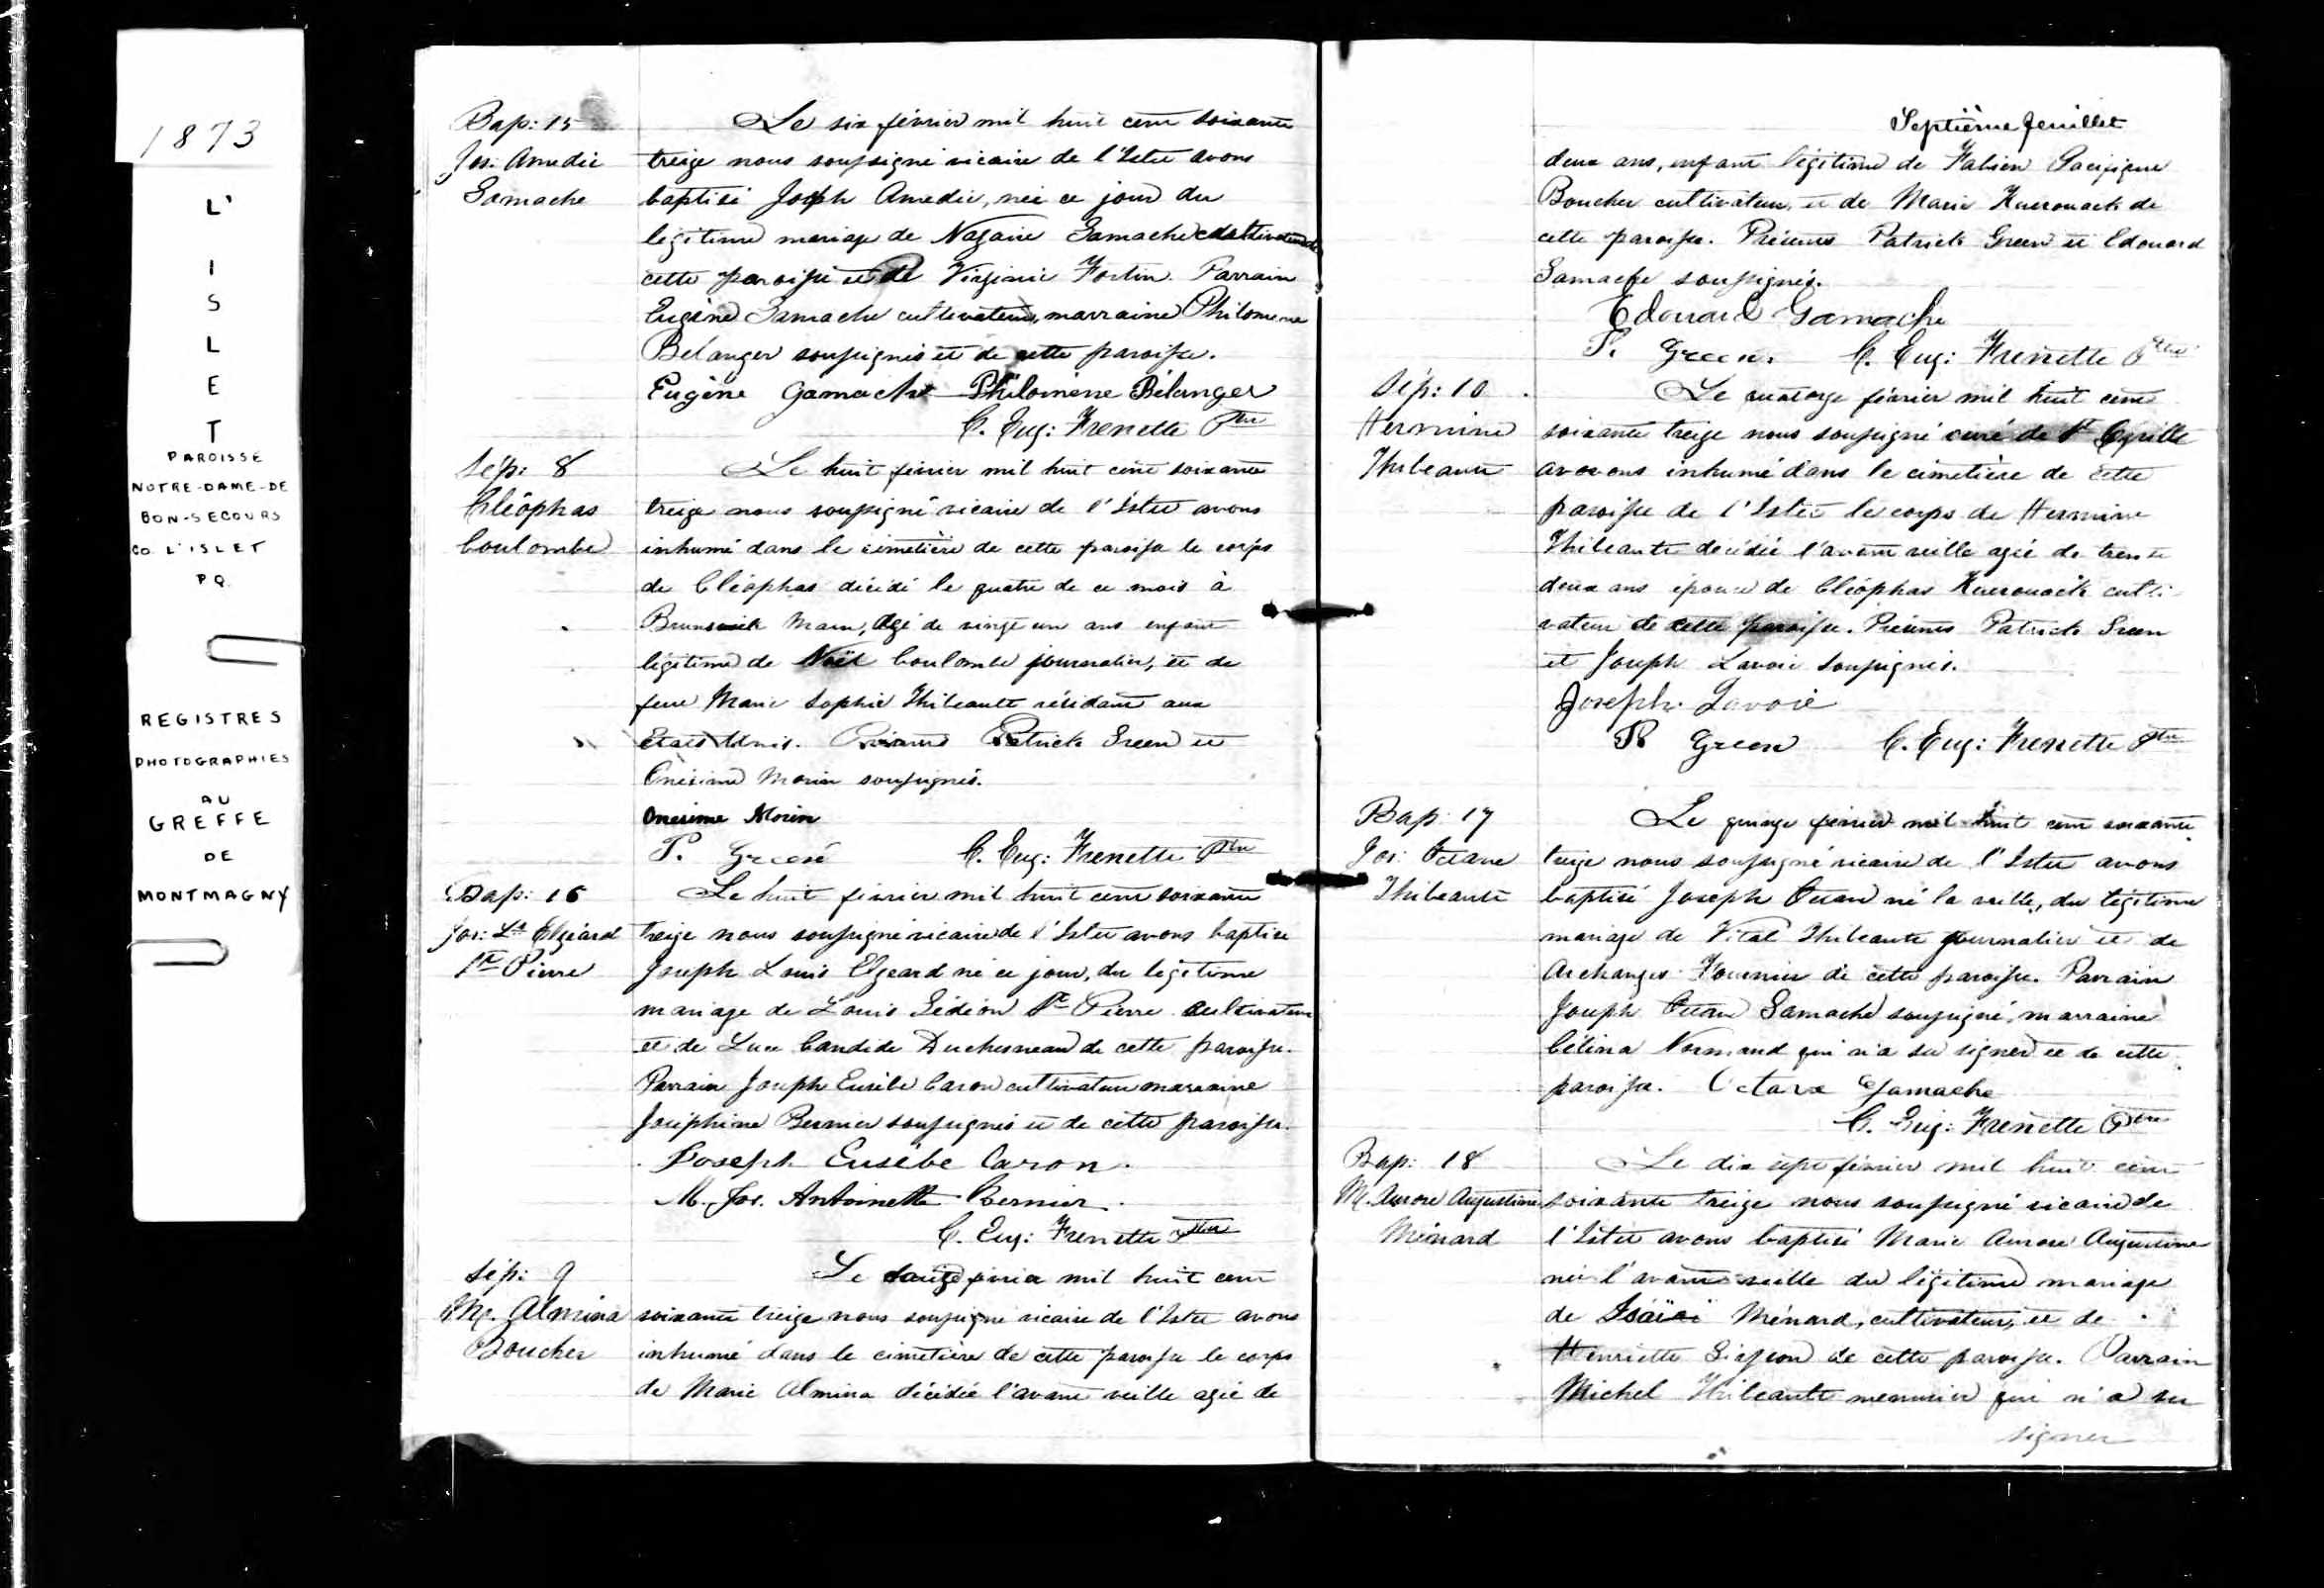 1873
L'
I
S
L
E
T
PAROISSE
NOTRE-DAME-DE
BON-SECOURS
CO. L'ISLET
P Q
REGISTRES
PHOTOGRAPHIES
AU
GREFFE
DE
MONTMAGNY
Bap: 15
Jos: Amedie
Gamache
Le six février mil huit cent soixante
treize nous soussigné vicaire de l'Islet avons
baptisé Joseph Amedie, né ce jour du
legitime mariage de Nazaire Gamache cultivateur de
cette paroisse et de Virginie Fortin. Parrain
Eugène Gamache cultivateur, marraine Philomene
Belanger soussignés et de cette paroisse.
Eugène Gamache Philomène Bélanger
C. Eug: Frenette Ptre
Sép: 8
Cléophas
Coulombe
Le huit février mil huit cent soixante
treize nous soussigné vicaire de l'Islet avons
inhumé dans le cimetière de cette paroisse le corps
de Cléophas décidé le quatre de ce mois à
Brunswick Main, âgé de vingt un ans enfant
légitime de Noël Coulombe journalier, et de
feue Marie Sophie Thibeault résidant aux
Etats Unis. Présents Patrick Green et
Onésime Morin soussignés.
Onesime Morin
P. Green C. Eug: Frenette Ptre
Bap: 16
Jos: Ls Elzéard
St Pierre
Le huit février mil huit cent soixante
treize nous soussigné vicaire de l'Islet avons baptisé
Joseph Louis Elzeard né ce jour, du légitime
mariage de Louis Gédéon St Pierre cultivateur
et de Luce Candide Duchesneau de cette paroisse.
Parrain Joseph Eusèbe Caron cultivateur marraine
Joséphine Bernier soussignés et de cette paroisse.
Joseph Eusèbe Caron.
M. Jos. Antoinette Bernier.
C. Eug: Frenette Ptre
Sép: 9
M. Almina
Boucher
Le février mil huit cent
soixante treize nous soussigné vicaire de l'Islet avons
inhumé dans le cimetière de cette paroisse le corps
de Marie Almina décidée l'avant veille agée de
Septième feuillet
deux ans, enfant légitime de Fabien Pacifique
Boucher cultivateur, et de Marie Kuerouack de
cette paroisse. Présents Patrick Green et Edouard
Gamache soussignés.
Edouard Gamache
P. Green. C. Eug: Frenette Ptre
Sép: 10
Hermine
Thibeault
Le quatorze février mil huit cent
soixante treize nous soussigné curé de St Cyrille
avons inhumé dans le cimetière de cette
paroisse de l'Islet le corps de Hermine
Thibeault décédée l'avant veille agée de trente
deux ans épouse de Cléophas Kuerouack culti
vateur de cette paroisse. Présents Patrick Green
et Joseph Lavoie soussignés.
Joseph Lavoie
P. Green C. Eug: Frenette Ptre
Bap: 17
Jos: Octave
Thibeault
Le quinze février mil huit cent soixante
treize nous soussigné vicaire de l'Islet avons
baptisé Joseph Octave né la veille, du légitime
mariage de Vital Thibeault journalier et de
Archanges Fournier de cette paroisse. Parrain
Joseph Octave Gamache soussigné, marraine
Célina Normand qui n'a su signer et de cette
paroisse. Octave Gamache
C. Eug: Frenette Ptre
Bap: 18
M. Aurore Augustine
Ménard
Le dix sept février mil huit cent
soixante treize nous soussigné vicaire de
l'Islet avons baptisé Marie Aurore Augustine
née l'avant veille du légitime mariage
de Isaïe Ménard, cultivateur, et de
Henriette de cette paroisse. Parrain
Michel Thibeault menuisier qui n'a su
signer